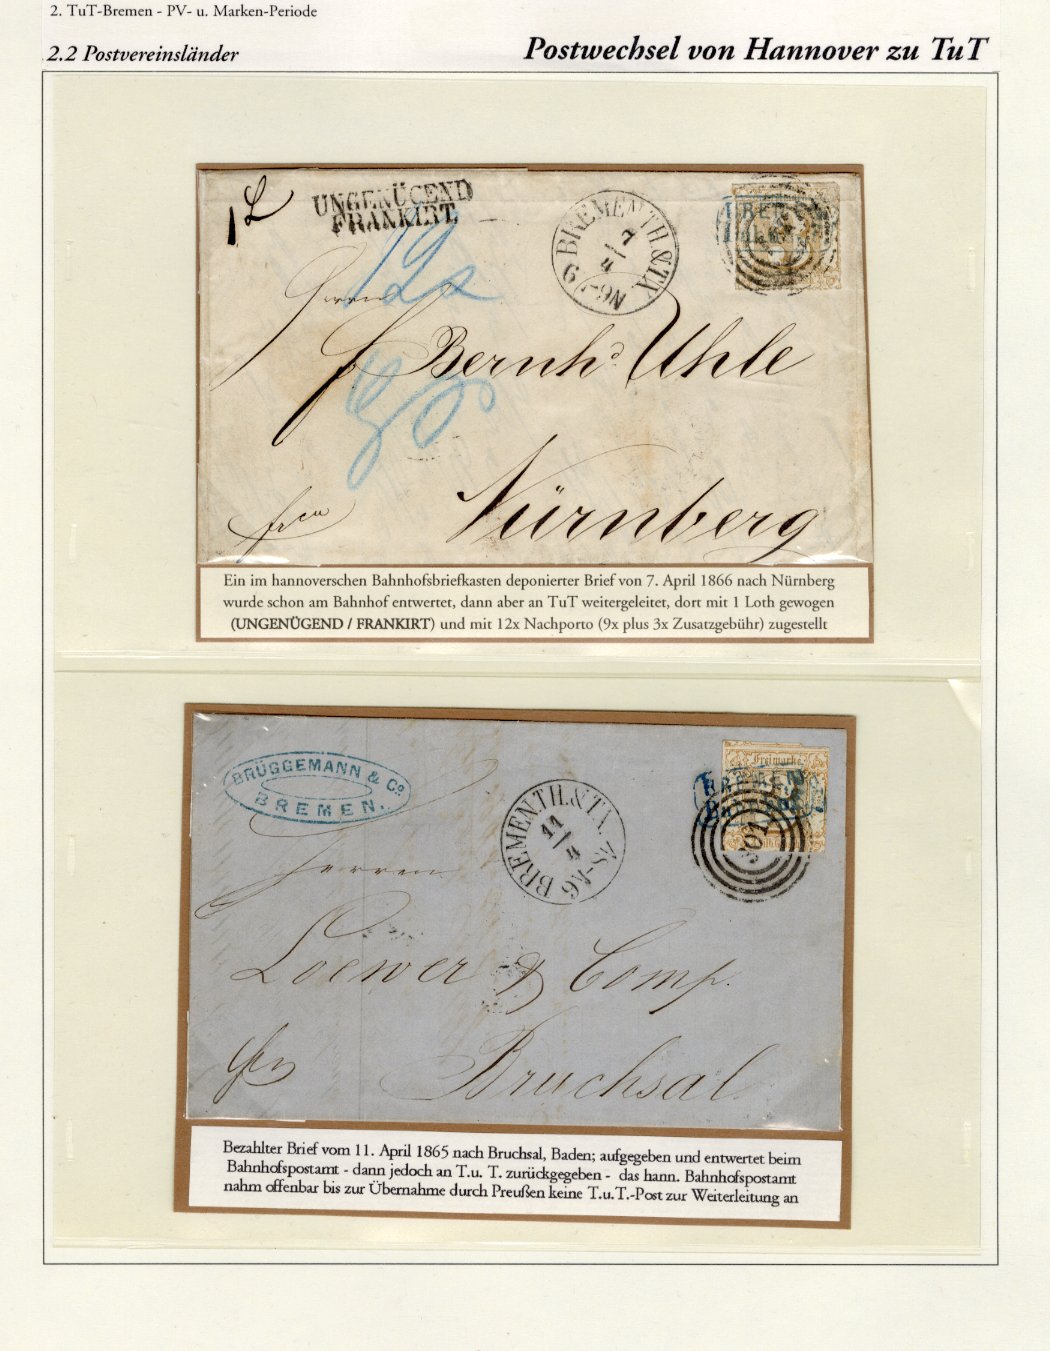 2. TuT-Bremen - PV- u. Marken-Periode
2.2 Postvereinsländer
Postwechsel von Hannover zu TuT
1 L
UNGENÜGEND
FRANKIRT.
BREMEN TH.&TX.
7
4
6
12x
Herrn
Bernhd. Uhle
Nürnberg
Ein im hannoverschen Bahnhofsbriefkasten deponierter Brief von 7. April 1866 nach Nürnberg
wurde schon am Bahnhof entwertet, dann aber an TuT weitergeleitet, dort mit 1 Loth gewogen
(UNGENÜGEND / FRANKIRT) und mit 12x Nachporto (9x plus 3x Zusatzgebühr) zugestellt
BRÜGGEMANN & Co.
BREMEN.
BREMEN TH.&TX.
11
4
Freimarke
BREMEN
301
Herren
Loewer & Comp.
Bruchsal.
Bezahlter Brief vom 11. April 1865 nach Bruchsal, Baden; aufgegeben und entwertet beim
Bahnhofspostamt - dann jedoch an T.u. T. zurückgegeben - das hann. Bahnhofspostamt
nahm offenbar bis zur Übernahme durch Preußen keine T.u.T.-Post zur Weiterleitung an